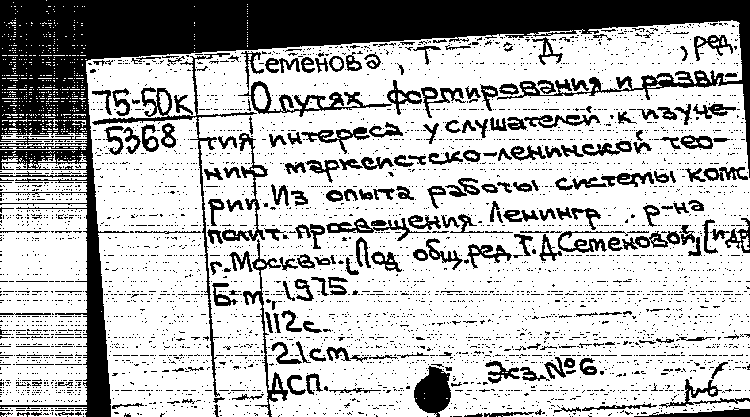 Семенова, Т Д , ред.
75-50к О путях формирования и разви-
5368 тия интереса у слушателей к изуче-
нию марксистско-ленинской тео-
рии. Из опыта работы системы комс
полит. просвещения Ленингр .. р-на
г. Москвы. [Под общ. ред. Т. Д. Семеновой] [и др
Б. м., 1975.
112с.
21cm
ДСП. Экз. №6.